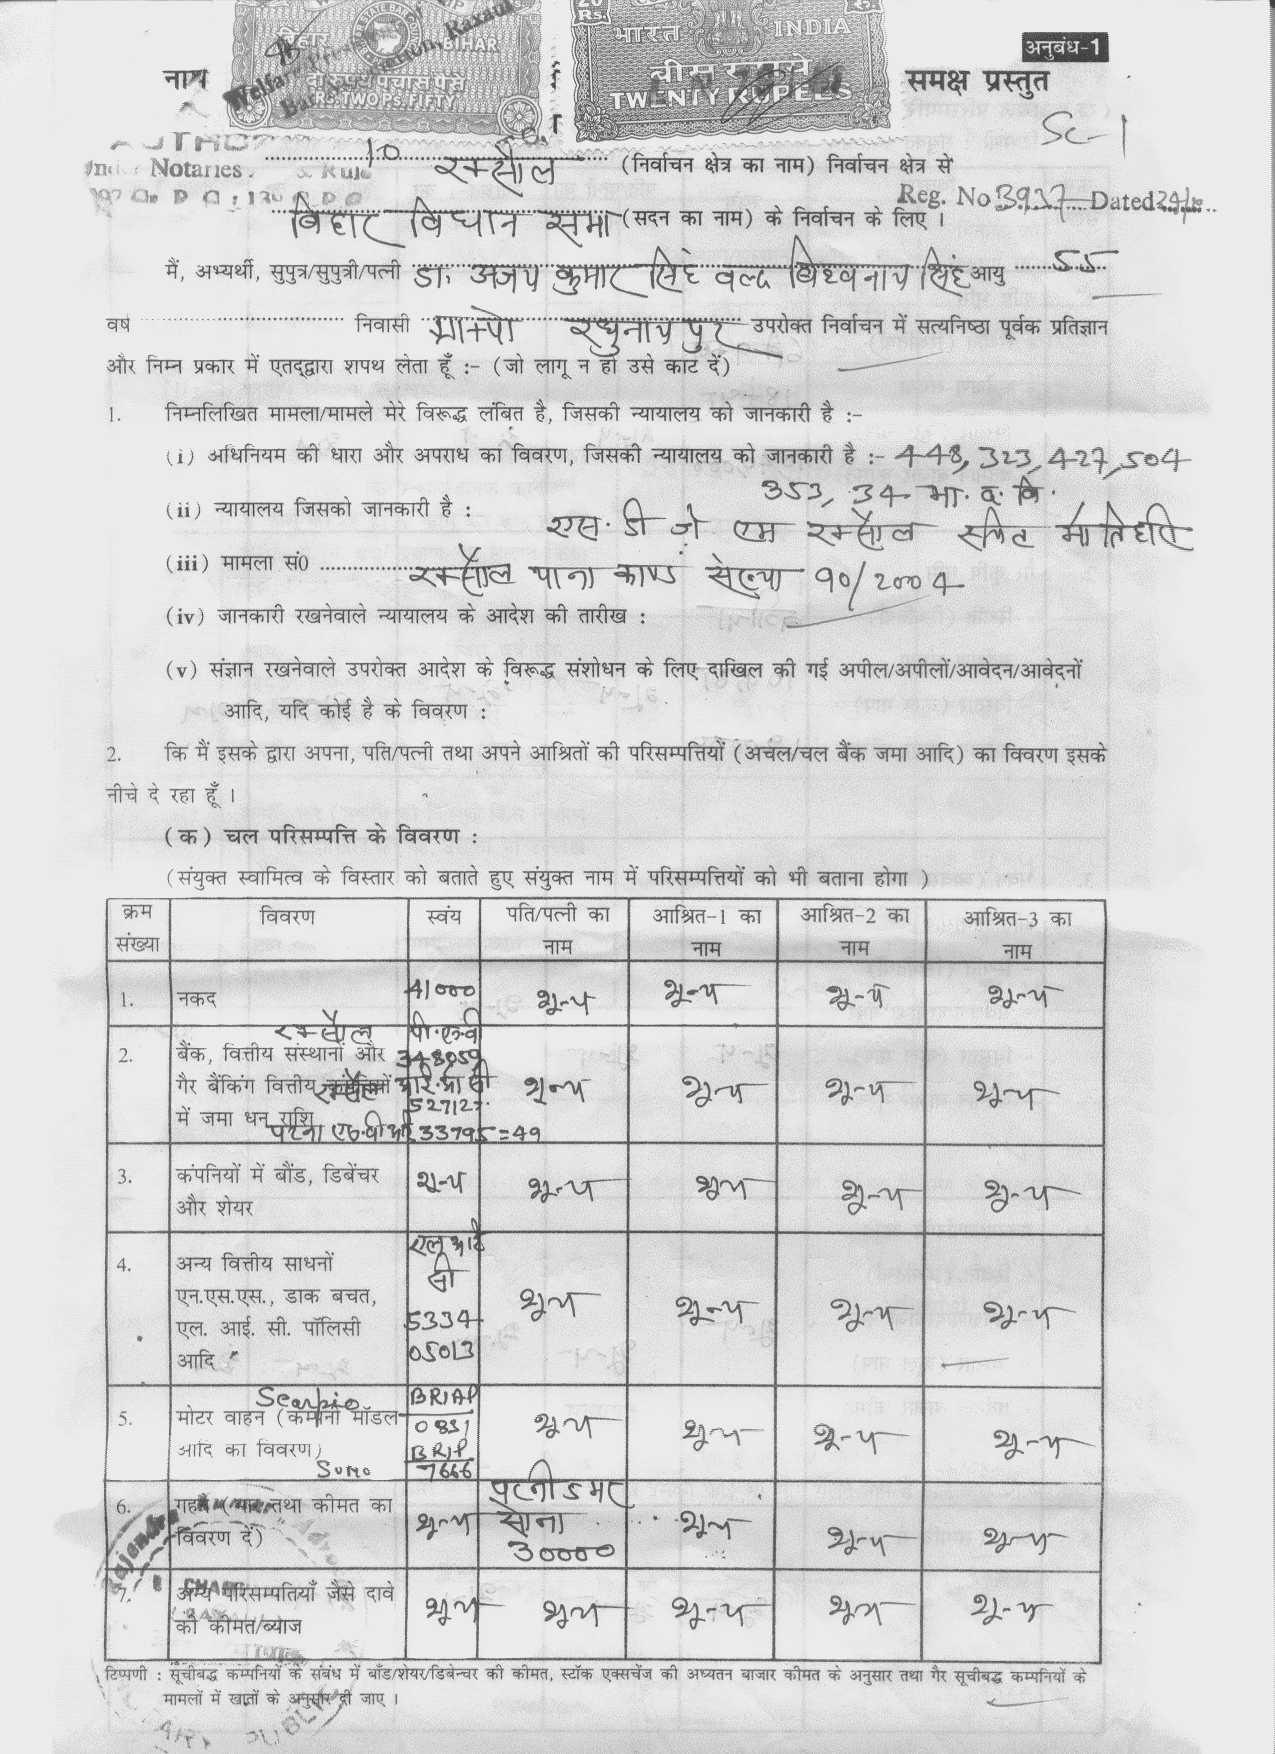 बिहार BIHAR
दो रुपए पचास पैसे
RS. TWO PS. FIFTY
Welfare
Raxaul
20 Rs.
भारत INDIA
बीस रुपये
TWENTY RUPEES
अनुबंध-1
समक्ष प्रस्तुत
SC-1
Notaries
10 रक्सौल (निर्वाचन क्षेत्र का नाम) निर्वाचन क्षेत्र से
Reg. No 3937 Dated
बिहार विधान सभा (सदन का नाम) के निर्वाचन के लिए ।
मैं, अभ्यर्थी, सुपुत्र/सुपुत्री/पत्नी डा॰ अजय कुमार सिंह वल्द विश्वनाथ सिंह आयु 55
वर्ष निवासी ग्रा+पो रघुनाथपुर उपरोक्त निर्वाचन में सत्यनिष्ठा पूर्वक प्रतिज्ञान
और निम्न प्रकार में एतद्द्वारा शपथ लेता हूँ :- (जो लागू न हो उसे काट दें)
1. निम्नलिखित मामला/मामले मेरे विरूद्ध लंबित है, जिसकी न्यायालय को जानकारी है :-
(i) अधिनियम की धारा और अपराध का विवरण, जिसकी न्यायालय को जानकारी है :- 448, 323, 427, 504
353, 34 भा. द. वि.
(ii) न्यायालय जिसको जानकारी है :
एस. डी जे एम रक्सौल स्थित मोतिहारी
(iii) मामला सं0 रक्सौल थाना काण्ड संख्या 90/2004
(iv) जानकारी रखनेवाले न्यायालय के आदेश की तारीख :
(v) संज्ञान रखनेवाले उपरोक्त आदेश के विरूद्ध संशोधन के लिए दाखिल की गई अपील/अपीलों/आवेदन/आवेदनों
आदि, यदि कोई है के विवरण :
2. कि मैं इसके द्वारा अपना, पति/पत्नी तथा अपने आश्रितों की परिसम्पत्तियों (अचल/चल बैंक जमा आदि) का विवरण इसके
नीचे दे रहा हूँ ।
(क) चल परिसम्पत्ति के विवरण :
(संयुक्त स्वामित्व के विस्तार को बताते हुए संयुक्त नाम में परिसम्पत्तियों को भी बताना होगा )
क्रम संख्या विवरण स्वंय पति/पत्नी का नाम आश्रित-1 का नाम आश्रित-2 का नाम आश्रित-3 का नाम
1. नकद 41000 शून्य शून्य शून्य शून्य
रक्सौल
2. बैंक, वित्तीय संस्थानों और 348059
गैर बैंकिंग वित्तीय कंपनियों शून्य शून्य शून्य शून्य
में जमा धन राशि 52712
पटना 33795=49
3. कंपनियों में बौंड, डिबेंचर
और शेयर शून्य शून्य शून्य शून्य शून्य
एल आई
सी
4. अन्य वित्तीय साधनों
एन.एस.एस., डाक बचत,
एल. आई. सी. पॉलिसी
आदि
5334
05013 शून्य शून्य शून्य शून्य
Scarpio BR1AP
5. मोटर वाहन (कम्पनी मॉडल 0831 शून्य शून्य शून्य शून्य
आदि का विवरण) BR1P
SUMO 7666
6. गहने ( भार तथा कीमत का
विवरण दें) शून्य पत्नी 5 भर सोना 30000 शून्य शून्य शून्य
7. अन्य परिसम्पतियाँ जैसे दावे
की कीमत/ब्याज शून्य शून्य शून्य शून्य शून्य
टिप्पणी : सूचीबद्ध कम्पनियों के संबंध में बाँड/शेयर/डिबेन्चर की कीमत, स्टॉक एक्सचेंज की अध्यतन बाजार कीमत के अनुसार तथा गैर सूचीबद्ध कम्पनियों के
मामलों में खातों के अनुसार दी जाए ।
Rajendra